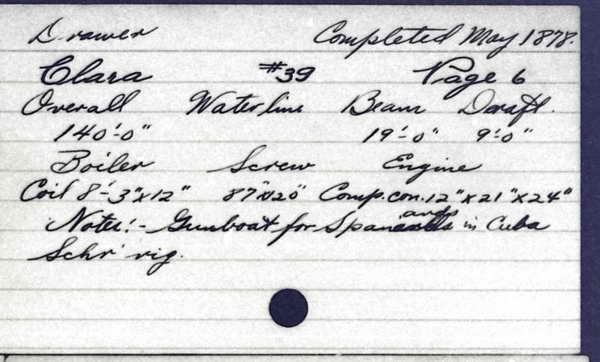 Drawer Completed May 1878.
Clara #39 Page 6
Overall Waterline Beam Draft.
140'-0" 19'-0" 9'-0"
Boiler Screw Engine
Coil 8'-3"x12" 87"x120" Comp. con. 12"x21"x24"
Notes:- Gunboat for in Cuba
Schr rig.